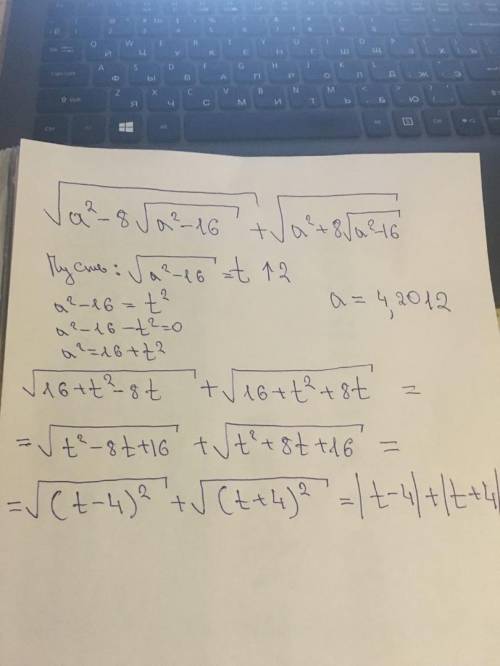 √(a² - 8√(a² - 16)) + √(a² + 8√(a² - 16))
Пусть: √(a² - 16) = t ↑2
a² - 16 = t²
a = 4,2012
a² - 16 - t² = 0
a² = 16 + t²
√(16 + t² - 8t) + √(16 + t² + 8t) =
= √(t² - 8t + 16) + √(t² + 8t + 16) =
= √((t - 4)²) + √((t + 4)²) = |t - 4| + |t + 4|